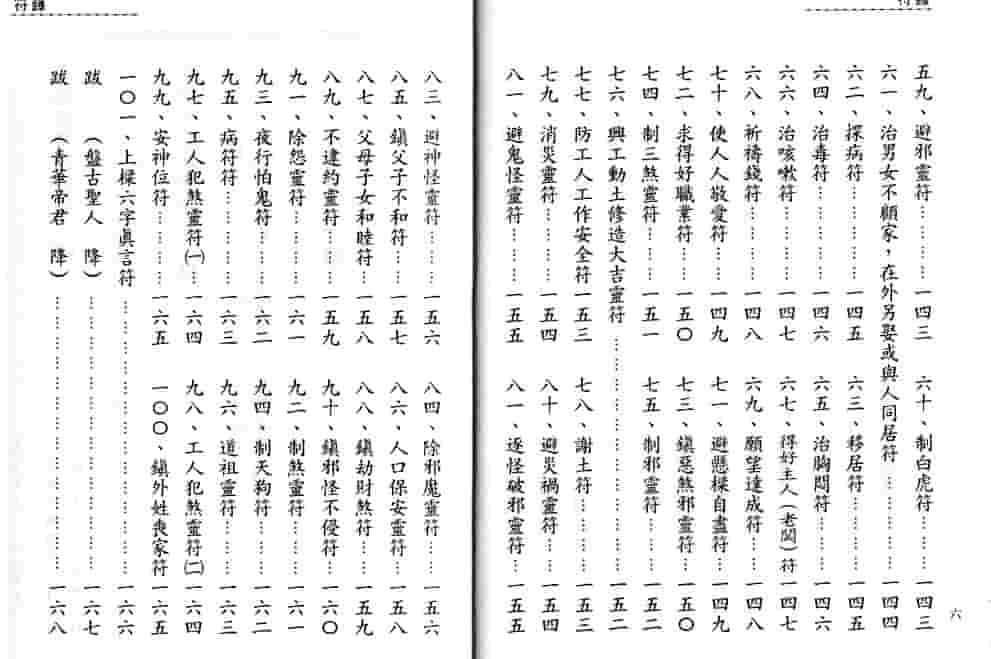 符籙
五九、避邪靈符……一四三
六十、制白虎符……一四三
六一、治男女不顧家，在外另娶或與人同居符……一四四
六二、探病符……一四五
六三、移居符……一四五
六四、治毒符……一四六
六五、治胸悶符……一四六
六六、治咳嗽符……一四七
六七、得好主人（老闆）符 一四七
六八、祈禱錢符……一四八
六九、願望達成符……一四八
七十、使人人敬愛符……一四九
七一、避懸樑自盡符……一四九
七二、求得好職業符……一五〇
七三、鎮惡煞邪靈符……一五〇
七四、制三煞靈符……一五一
七五、制邪靈符……一五一
七六、興工動土修造大吉靈符……一五二
七七、防工人工作安全符……一五三
七八、謝土符……一五三
七九、消災靈符……一五四
八十、避災禍靈符……一五四
八一、避鬼怪靈符……一五五
八一、逐怪破邪靈符……一五五
六
符籙
八三、避神怪靈符……一五六
八四、除邪魔靈符……一五六
八五、鎮父子不和符……一五七
八六、人口保安靈符……一五八
八七、父母子女和睦符……一五八
八八、鎮劫財煞符……一五九
八九、不違約靈符……一五九
九十、鎮邪怪不侵符……一六〇
九一、除怨靈符……一六一
九二、制煞靈符……一六一
九三、夜行怕鬼符……一六二
九四、制天狗符……一六二
九五、病符符……一六三
九六、道祖靈符……一六三
九七、工人犯煞靈符㈠……一六四
九八、工人犯煞靈符㈡……一六四
九九、安神位符……一六五
一〇〇、鎮外姓喪家符 一六五
一〇一、上樑六字眞言符……一六六
跋 （盤古聖人 降）……一六七
跋 （青華帝君 降）……一六八